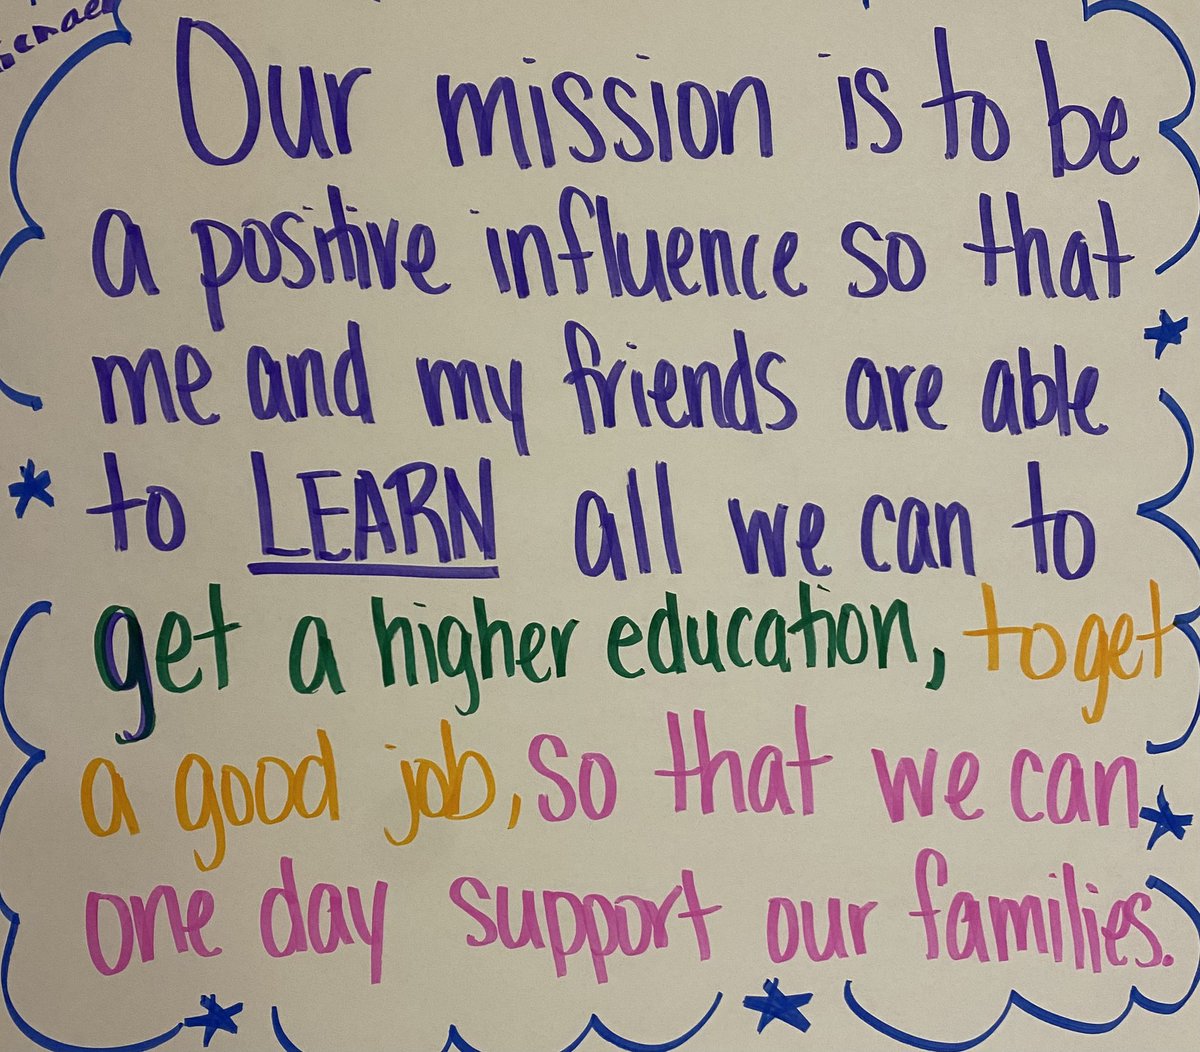 Our mission is to be
a positive influence so that
me and my friends are able
to LEARN all we can to
get a higher education, to get
a good job, so that we can
one day support our families.